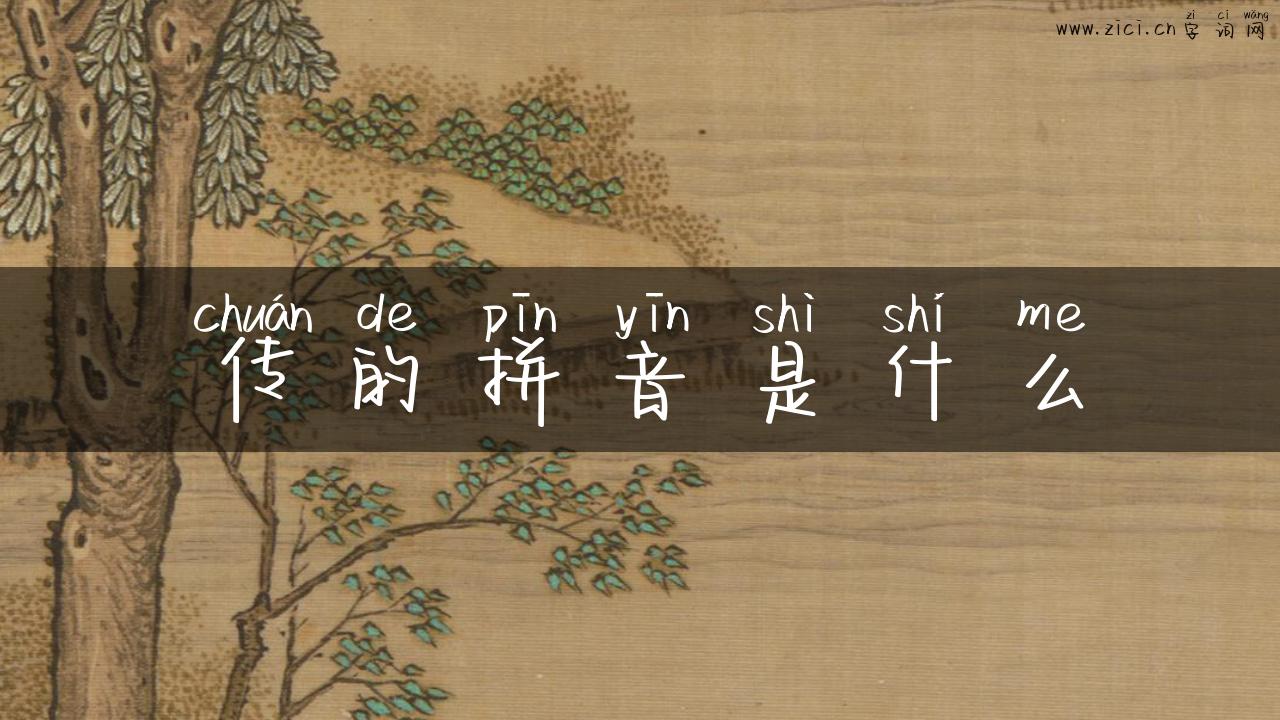 zì cí wǎng
www.zici.cn 字词网
chuán de pīn yīn shì shí me
传的拼音是什么